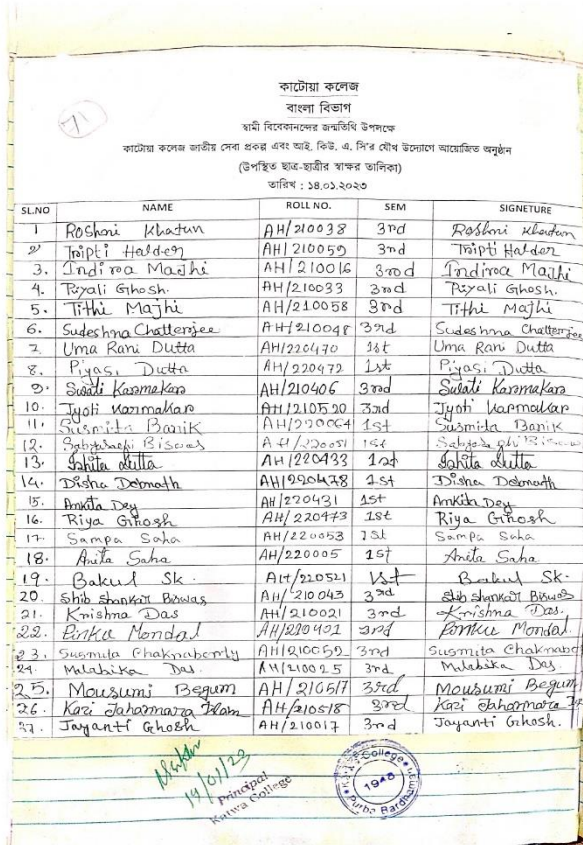 71
কাটোয়া কলেজ
বাংলা বিভাগ
স্বামী বিবেকানন্দের জন্মতিথি উপলক্ষে
কাটোয়া কলেজ জাতীয় সেবা প্রকল্প এবং আই. কিউ. এ. সি'র যৌথ উদ্যোগে আয়োজিত অনুষ্ঠান
(উপস্থিত ছাত্র-ছাত্রীর স্বাক্ষর তালিকা)
তারিখ : ১৪.০১.২০২৩
SL.NO NAME ROLL NO. SEM SIGNETURE
1 Roshni Khatun AH/210038 3rd Roshni Khatun
2 Tripti Halder AH/210059 3rd Tripti Halder
3. Indira Majhi AH/210016 3rd Indira Majhi
4. Piyali Ghosh. AH/210033 3rd Piyali Ghosh.
5. Tithi Majhi AH/210058 3rd Tithi Majhi
6. Sudeshna Chatterjee AH/210048 3rd Sudeshna Chatterjee
7. Uma Rani Dutta AH/220470 1st Uma Rani Dutta
8. Piyasi Dutta AH/220472 1st Piyasi Dutta
9. Swati Karmakar AH/210406 3rd Swati Karmakar
10. Jyoti Karmakar AH/210520 3rd Jyoti Karmakar
11. Susmita Banik AH/220064 1st Susmita Banik
12. Biswas AH/220051 1st
13. Ishita Dutta AH/220433 1st Ishita Dutta
14. Disha Debnath AH/220478 1st Disha Debnath
15. Ankita Dey AH/220431 1st Ankita Dey
16. Riya Ghosh AH/220473 1st Riya Ghosh
17. Sampa Saha AH/220053 1st Sampa Saha
18. Anita Saha AH/220005 1st Anita Saha
19. Bakul Sk. AH/220521 1st Bakul Sk.
20. Shib Shankar Biswas AH/210043 3rd Shib Shankar Biswas
21. Krishna Das AH/210021 3rd Krishna Das.
22. Pinku Mondal 3rd Pinku Mondal.
23. Susmita Chakraborty AH/210052 3rd Susmita Chakrabo
24. Malabika Das. AH/210025 3rd Malabika Das.
25. Mousumi Begum AH/210517 3rd Mousumi Begum
26. Kazi Jahanara Islam AH/210518 3rd Kazi Jahanara
27. Jayanti Ghosh AH/210017 3rd Jayanti Ghosh.
14/01/23
Principal
Katwa College
Katwa College
1948
Purba Bardhaman